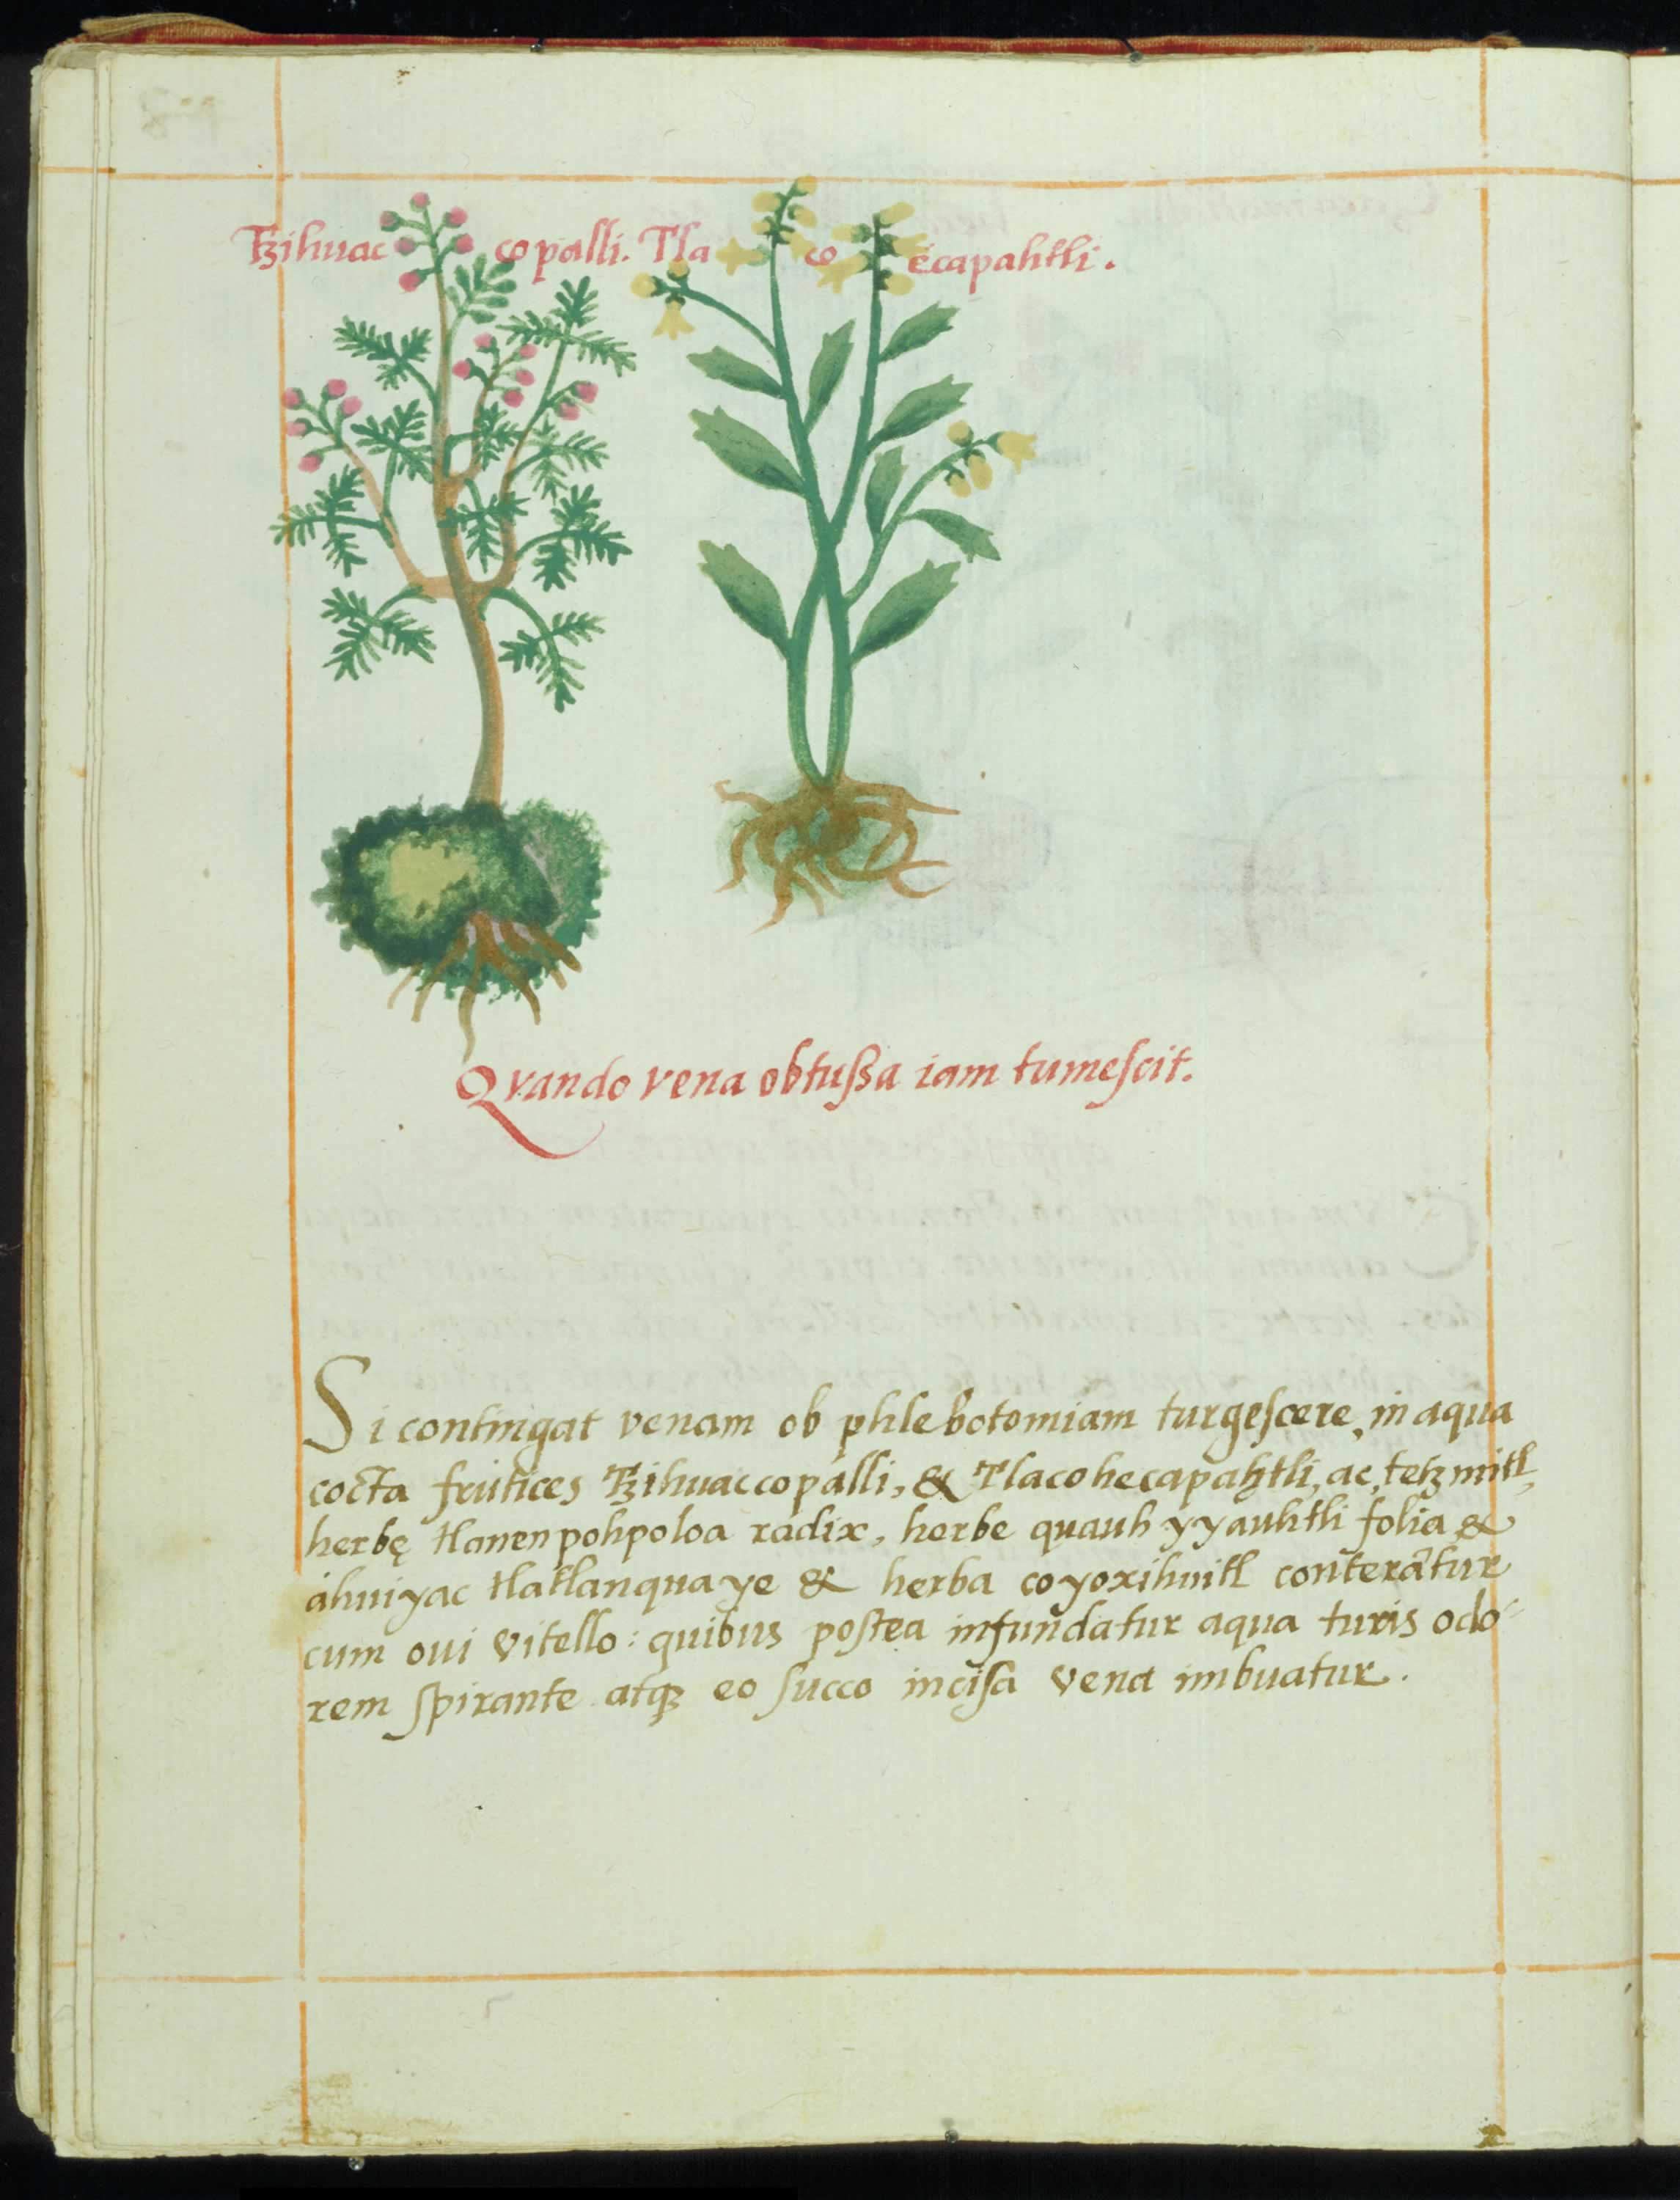 Tzihuac copalli. Tlaco ecapahtli.
Qvando vena obtussa iam tumescit.
Si contingat venam ob phlebotomiam turgescere, in aqua
cocta frutices Tzihuaccopalli, & Tlacohecapahtli, ac, tetzmitl,
herbę tlanenpohpoloa radix, herbe quauh yyauhtli folia &
ahuiyac tlatlanquaye & herba coyoxihuitl conterãtur
cum oui vitello: quibus postea infundatur aqua turis odo-
rem spirante atqꝫ eo succo incisa vena imbuatur.